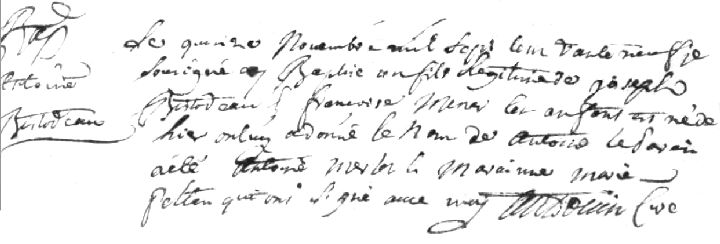 Bap
Antoine
Bistodeau
Le quinze Novembre mil sept cent trante neuf je
soussigné ay Baptise un fils legitime de joseph
Bistodeau & francoise Menet lenfant est né de
hier on luy a donné le Nom de Antoine le parain
a été Antoine Merlot la Maraine Marie
Peltan qui ont signé avec moy Ardouin Curé